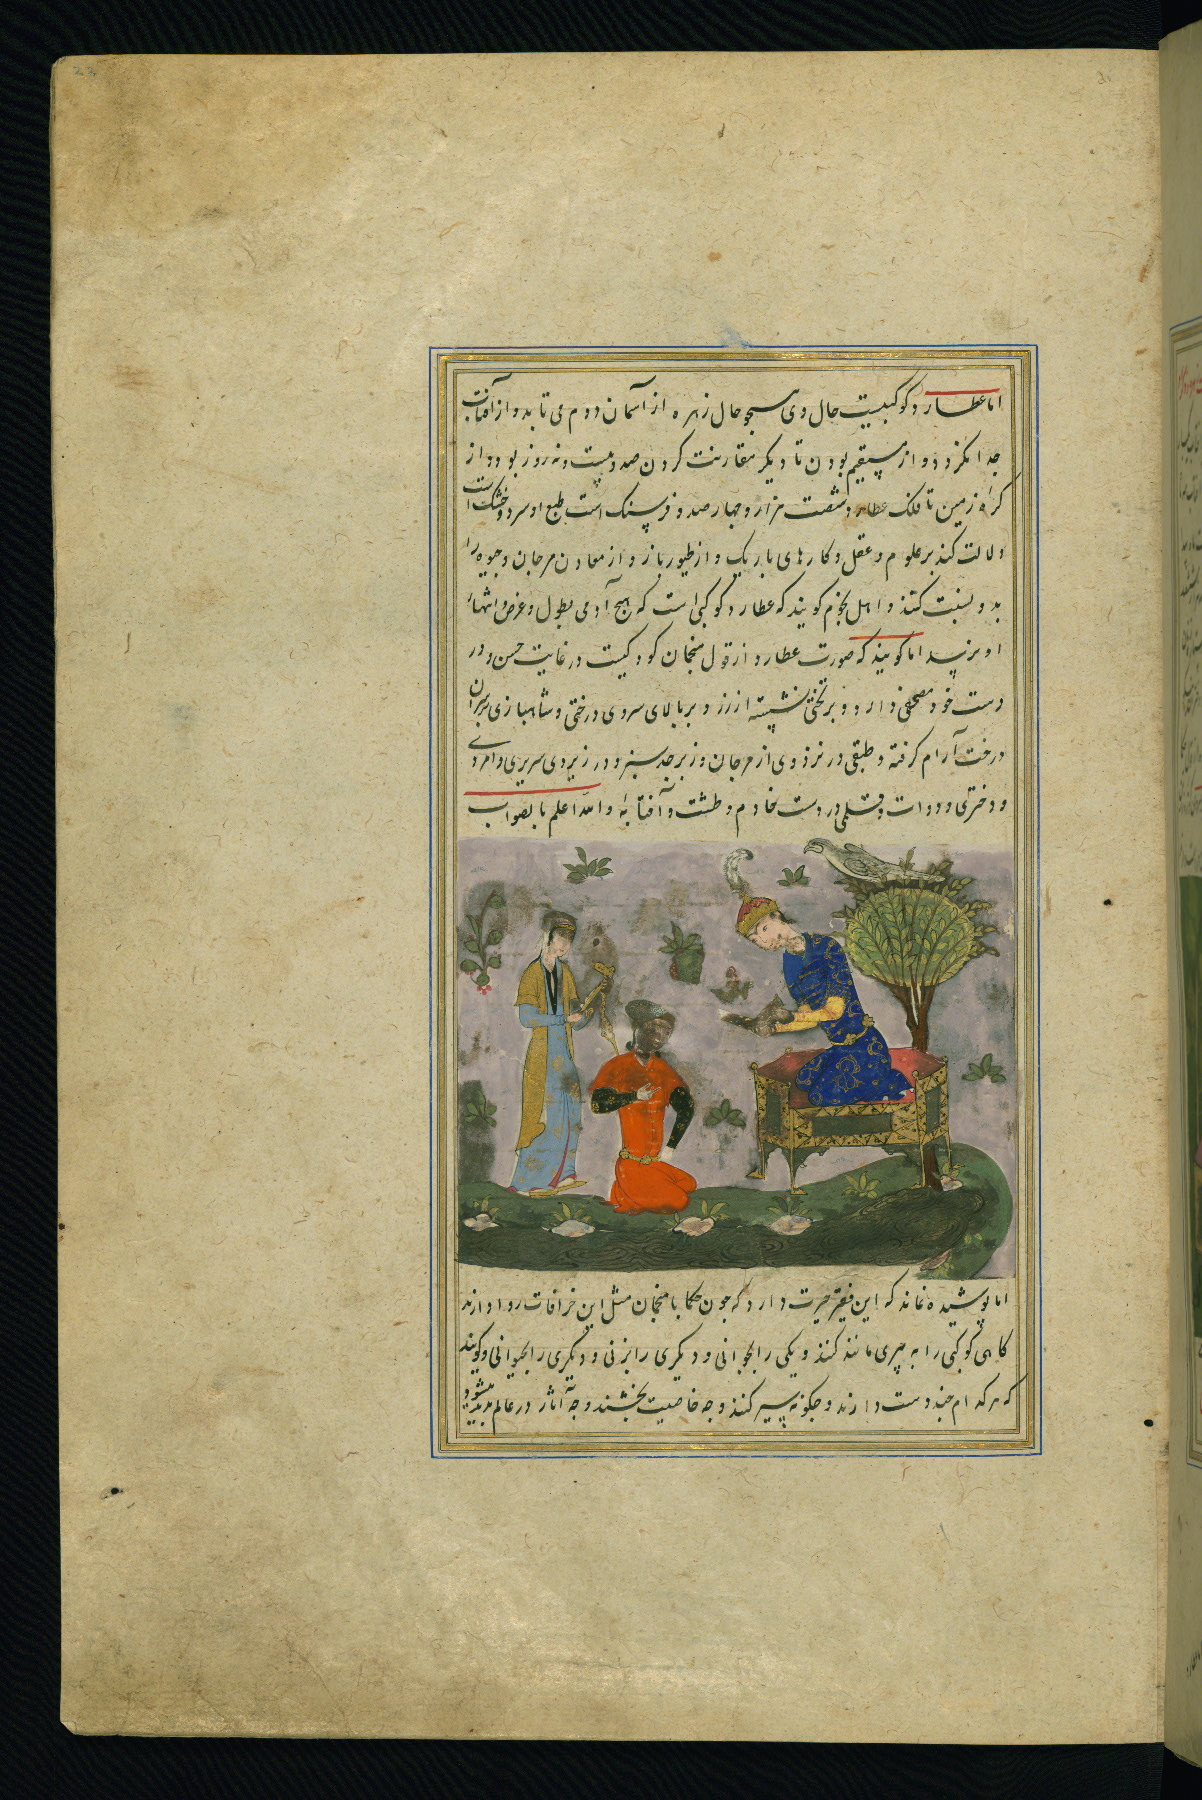 اما عطارد کوکبیست حال وی همچو حال زهره از آسمان دوم می تابد و از آفتاب
جدا نکردد و از مستقیم بودن تا دیکر مقارنت کردن صد و بیست و نه روز بود و از
کره زمین تا فلک عطارد شصت هزار و چهار صد و فرسنک است طبع او سرد و خشک است
دلالت کند بر علوم و عقل و کارهای باریک و از طیور باز و از معادن مرجان و جیوه را
بدو نسبت کنند و اهل نجوم کویند که عطارد کوکبی است که هیچ آدمی بطول و عرض و انتهاء
او نرسد اما کویند که صورت عطارد از قول منجمان کودکیست در غایت حسن و در
دست خود مصحفی دارد و بر تختی نشسته از زر و بر بالای سر وی درختی و شاهبازی بر سر آن
درخت آرام کرفته و طبقی در نزد وی از مرجان و زبرجد سبز و در زیر وی سریری و امردی
و دختری و دوات و قلمی در دست خادم و طشت و آفتابه و الله اعلم بالصواب
اما پوشیده نماند که این فقیر حیرت دارد که چون حکما با منجمان مثل این خرافات روا دارند
کاهی کوکبی را به چیزی مانند کنند و یکی را بجوانی و دیکری را بزنی و دیکری را بحیوانی و کویند
که هر کدام چند دست دارند و چکونه سیر کنند و چه خاصیت بخشند و چه آثار در عالم پدید میشود